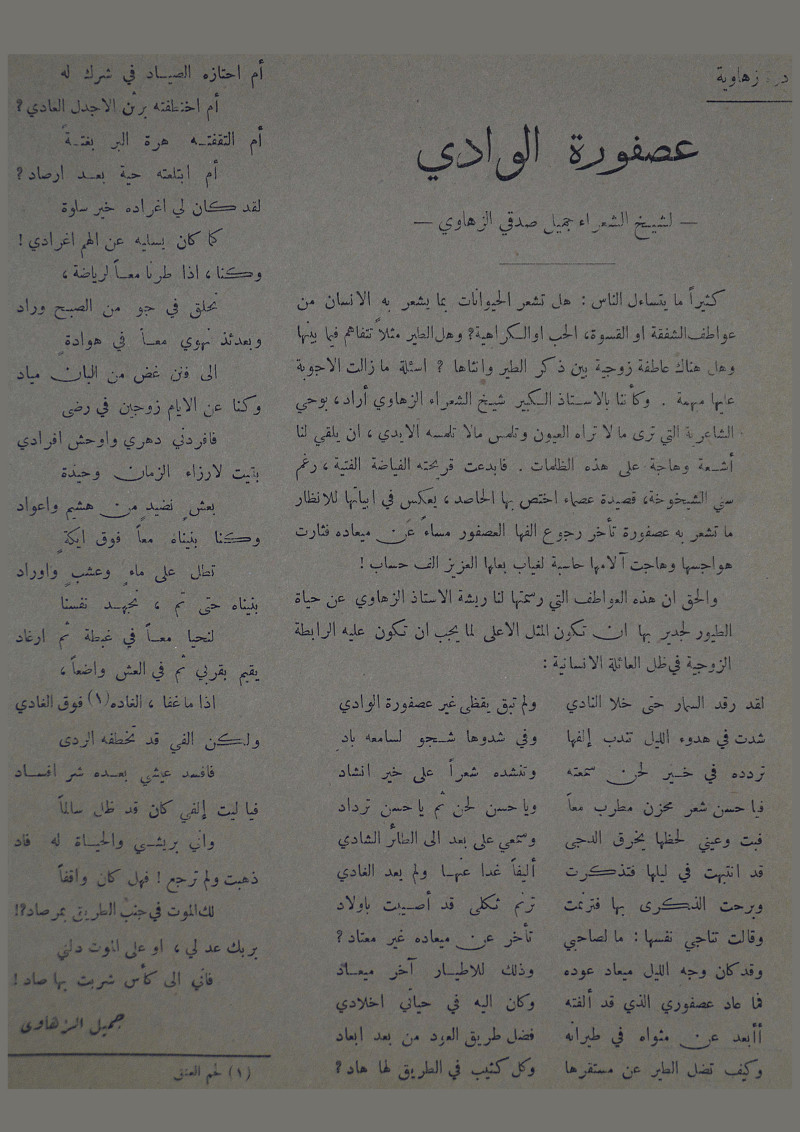 درة زهاوية
عصفورة الوادي
— لشيخ الشعراء جميل صدقي الزهاوي —
كثيراً ما يتساءل الناس : هل تشعر الحيوانات بما يشعر به الانسان من
عواطف الشفقة او القسوة، الحب او الكراهية؟ وهل الطير مثلاً تتفاهم فيما بينها
وهل هناك عاطفة زوجية بين ذكر الطير وانثاها ؟ اسئلة ما زالت الاجوبة
عليها مبهمة . وكأننا بالاستاذ الكبير شيخ الشعراء الزهاوي أراد، بوحي
الشاعرية التي ترى ما لا تراه العيون وتلمس مالا تلمسه الايدي ، ان يلقي لنا
أشعة وهاجة على هذه الظلمات . فابدعت قريحته الفياضة الفتية ، رغم
سني الشيخوخة، قصيدة عصماء اختص بها الحاصد، يعكس في ابياتها للانظار
ما تشعر به عصفورة تأخر رجوع الفها العصفور مساءً عن ميعاده فثارت
هواجسها وهاجت آلامها حاسبة لغياب بعلها العزيز الف حساب !
والحق ان هذه العواطف التي رسمتها لنا ريشة الاستاذ الزهاوي عن حياة
الطيور لجدير بها ان تكون المثل الاعلى لما يجب ان تكون عليه الرابطة
الزوجية في ظل العائلة الانسانية :
لقد رقد السمار حتى خلا النادي ولم تبق يقظى غير عصفورة الوادي
شدت في هدوء الليل تندب إلفها وفي شدوها شجو لسامعه باد
تردده في خير لحن سمعته وتنشده شعراً على خير انشاد
فيا حسن شعر محزن مطرب معاً ويا حسن لحن ثم يا حسن ترداد
فبت وعيني لحظها يخرق الدجى وسمعي على بعد الى الطائر الشادي
قد انتبهت في ليلها فتذكرت أليفاً غدا عنها ولم يعد الغادي
وبرحت الذكرى بها فترنمت ترنم ثكلى قد أصيبت باولاد
وقالت تناجي نفسها : ما لصاحبي تأخر عن ميعاده غير معتاد ؟
وقد كان وجه الليل ميعاد عوده وذلك للاطيار آخر ميعاد
فما عاد عصفوري الذي قد ألفته وكان اليه في حياتي اخلادي
أأبعد عن مثواه في طيرانه فضل طريق العود من بعد ابعاد
وكيف تضل الطير عن مستقرها وكل كثيب في الطريق لها هاد ؟
أم احتازه الصياد في شرك له
أم اختطفته برثن الاجدل العادي ؟
أم التقفته هرة البر بغتةً
أم ابتلعته حية بعد ارصاد ؟
لقد كان لي اغراده خير سلوة
كما كان يسليه عن الهم اغرادي !
وكنا ، اذا طرنا معاً لرياضة ،
نحلق في جو من الصبح وراد
وبعدئذ نهوي معاً في هوادةٍ
الى فنن غض من البان مياد
وكنا عن الايام زوجين في رضى
فافردني دهري واوحش افرادي
بقيت لارزاء الزمان وحيدة
بعشٍ نضيدٍ من هشيم واعواد
وكنا بنيناه معاً فوق ايكةٍ
تطل على ماءٍ وعشبٍ واوراد
بنيناه حتى تم ، نجهد نفسنا
لنحيا معاً في غبطة ثم ارغاد
يقيم بقربي ثم في العش واضعاً ،
اذا ما غفا ، الغاده (١) فوق الغادي
ولكن الفي قد تخطفه الردى
فافسد عيشي بعده شر افساد
فيا ليت إلفي كان قد ظل سالماً
واني بريشي والحياة له فاد
ذهبت ولم ترجع ! فهل كان واقفاً
لك الموت في جنب الطريق بمرصاد؟!
بربك عد لي ، او على الموت دلني
فاني الى كأس شربت بها صاد !
جميل الزهاوى
(١) لحم العنق